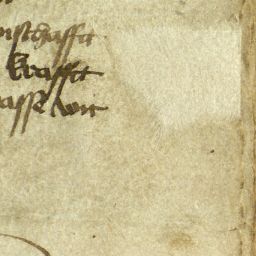 nschafft
krafft
asse wir